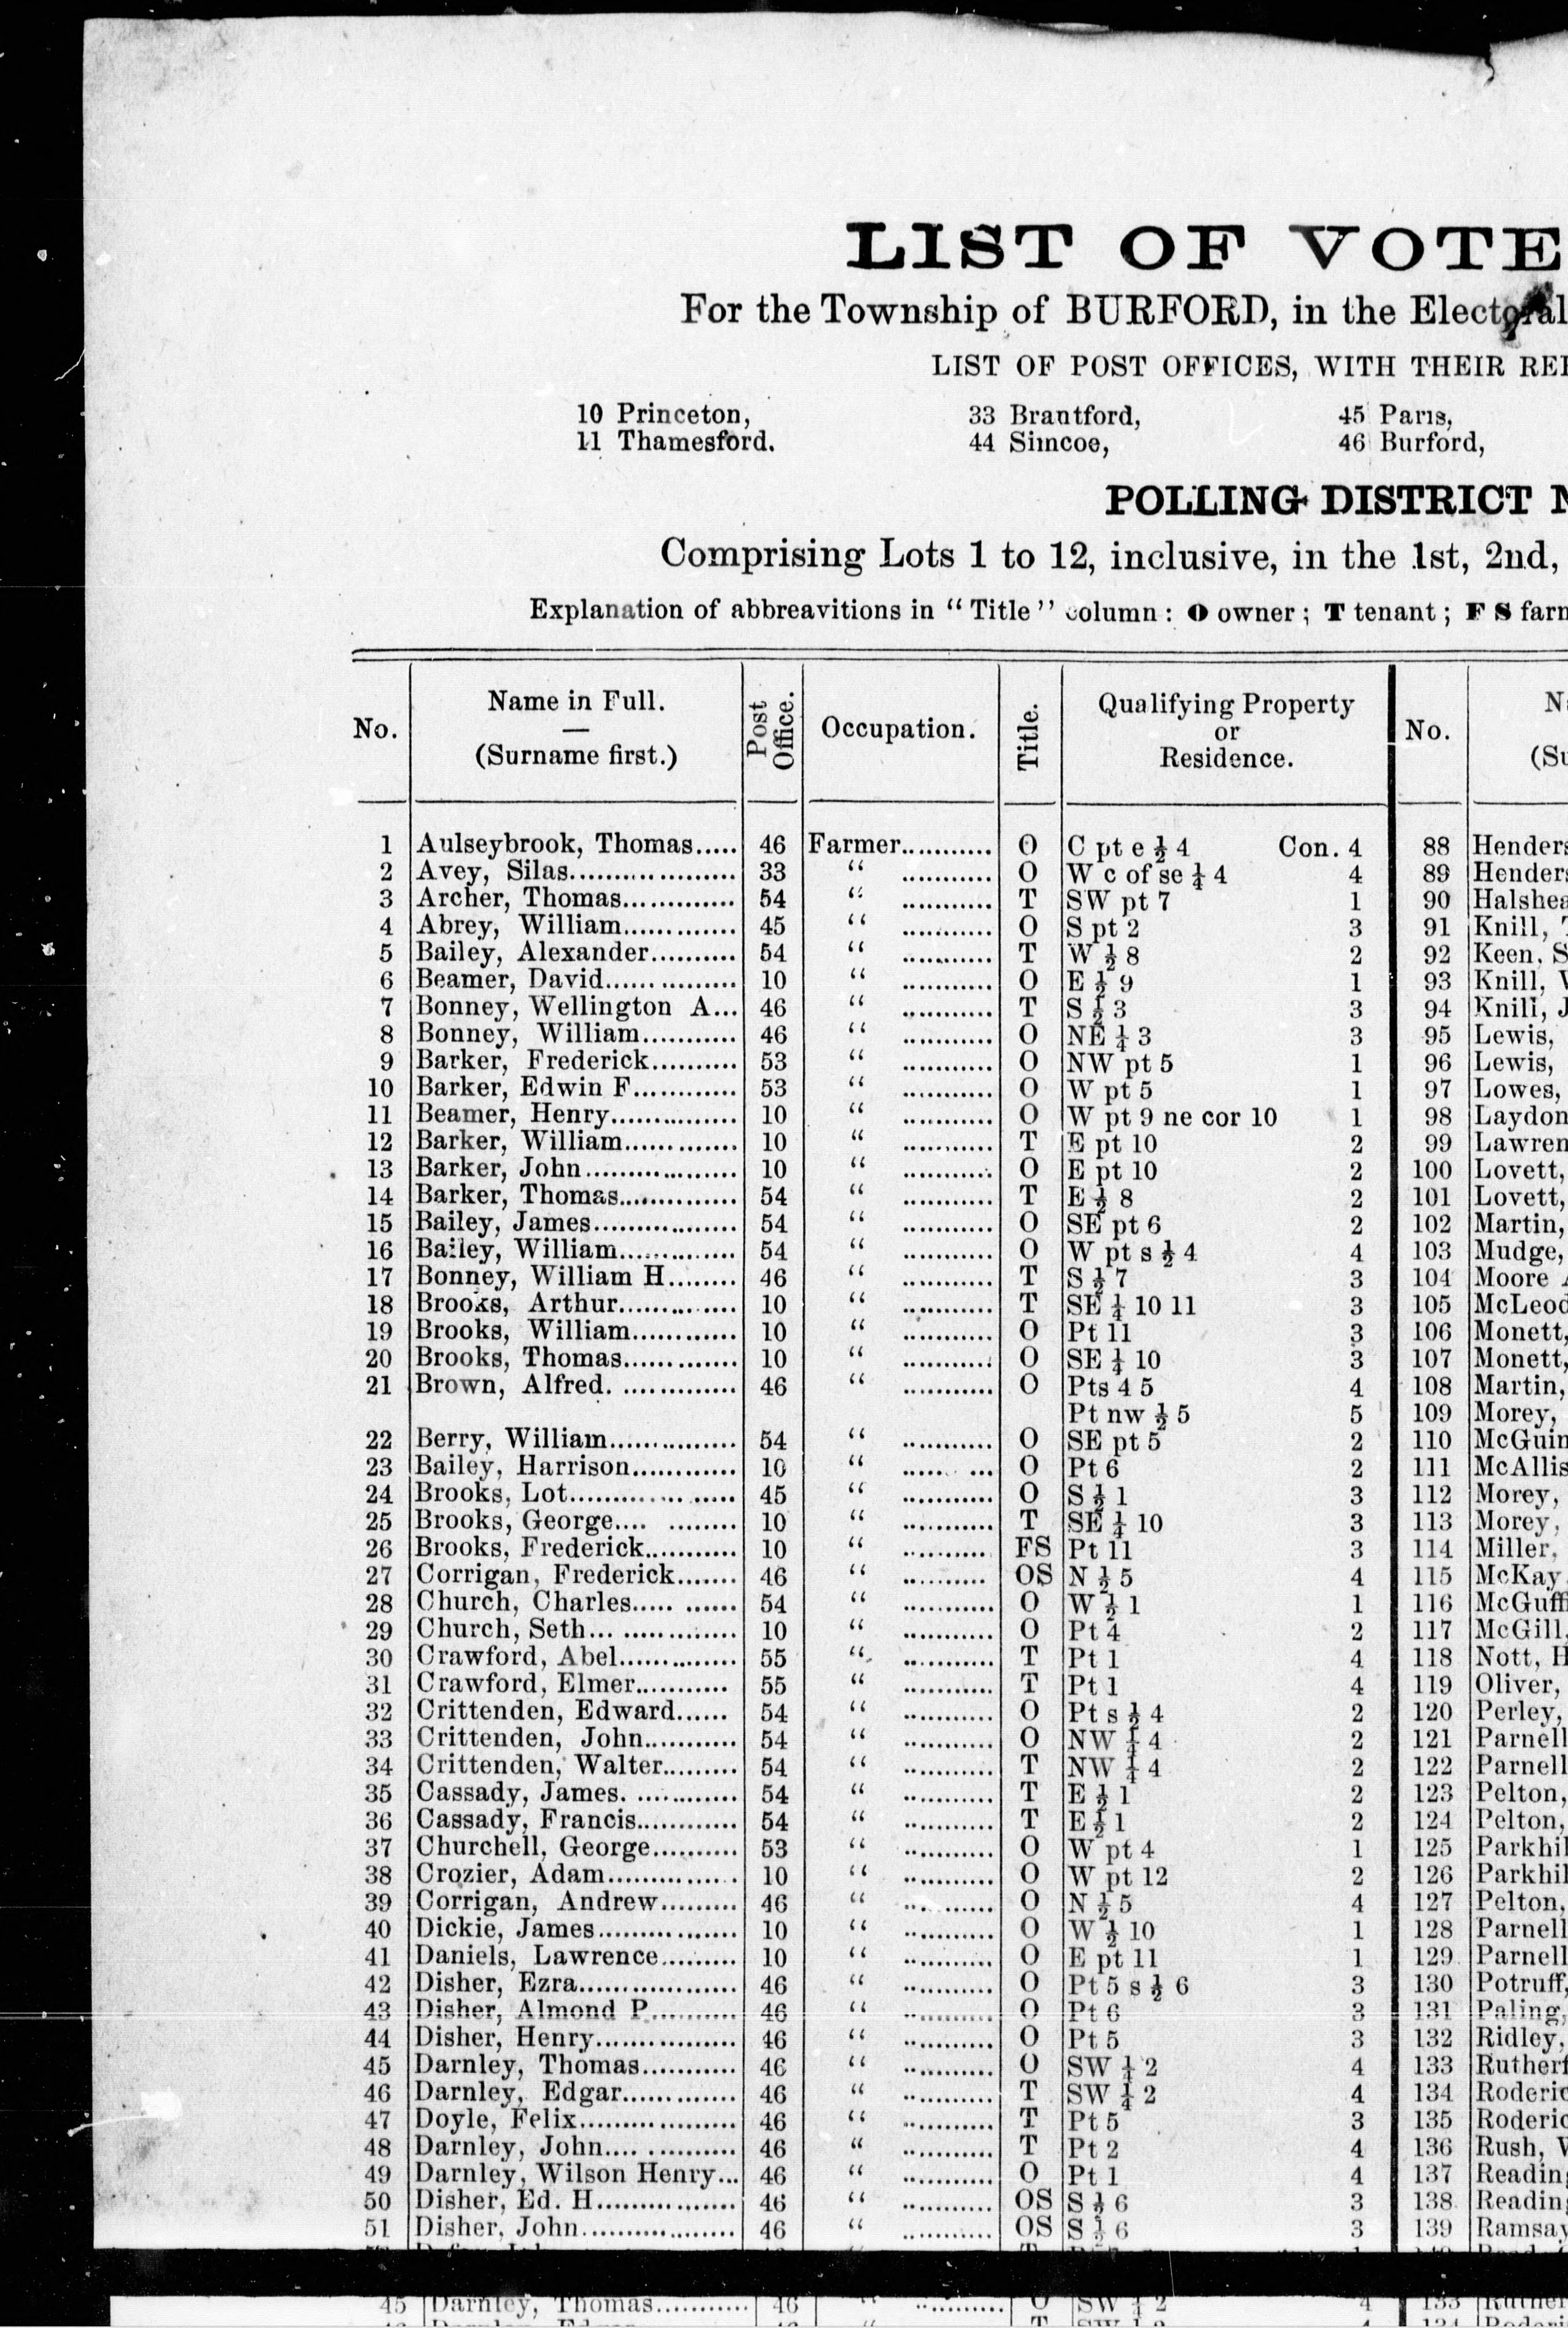 LIST OF VOTE
For the Township of BURFORD, in the Electoral
LIST OF POST OFFICES, WITH THEIR REF
10 Princeton, 33 Brantford, 45 Paris,
11 Thamesford. 44 Simcoe, 46 Burford,
POLLING DISTRICT N
Comprising Lots 1 to 12, inclusive, in the 1st, 2nd,
Explanation of abbreavitions in "Title" column: O owner; T tenant; F S farm
No. Name in Full. — (Surname first.) Post Office. Occupation. Title. Qualifying Property or Residence. No. (Su
1 Aulseybrook, Thomas..... 46 Farmer........... O C pt e ½ 4 Con. 4 88 Henders
2 Avey, Silas.................. 33 " ........... O W c of se ¼ 4 4 89 Henders
3 Archer, Thomas............. 54 " ........... T SW pt 7 1 90 Halshea
4 Abrey, William............. 45 " ........... O S pt 2 3 91 Knill,
5 Bailey, Alexander.......... 54 " ........... T W ½ 8 2 92 Keen, S
6 Beamer, David............... 10 " ........... O E ½ 9 1 93 Knill,
7 Bonney, Wellington A... 46 " ........... T S ½ 3 3 94 Knill, J
8 Bonney, William........... 46 " ........... O NE ¼ 3 3 95 Lewis,
9 Barker, Frederick.......... 53 " ........... O NW pt 5 1 96 Lewis,
10 Barker, Edwin F............ 53 " ........... O W pt 5 1 97 Lowes,
11 Beamer, Henry.............. 10 " ........... O W pt 9 ne cor 10 1 98 Laydon
12 Barker, William............. 10 " ........... T E pt 10 2 99 Lawren
13 Barker, John................. 10 " ........... O E pt 10 2 100 Lovett,
14 Barker, Thomas.............. 54 " ........... T E ½ 8 2 101 Lovett,
15 Bailey, James................ 54 " ........... O SE pt 6 2 102 Martin,
16 Bailey, William.............. 54 " ........... O W pt s ½ 4 4 103 Mudge,
17 Bonney, William H........ 46 " ........... T S ½ 7 3 104 Moore
18 Brooks, Arthur.............. 10 " ........... T SE ¼ 10 11 3 105 McLeod
19 Brooks, William............ 10 " ........... O Pt 11 3 106 Monett,
20 Brooks, Thomas............. 10 " ........... O SE ¼ 10 3 107 Monett,
21 Brown, Alfred. ............. 46 " ........... O Pts 4 5 4 108 Martin,
Pt nw ½ 5 5 109 Morey,
22 Berry, William.............. 54 " ........... O SE pt 5 2 110 McGuin
23 Bailey, Harrison............ 10 " ........... O Pt 6 2 111 McAllis
24 Brooks, Lot.................. 45 " ........... O S ½ 1 3 112 Morey,
25 Brooks, George.... ........ 10 " ........... T SE ¼ 10 3 113 Morey,
26 Brooks, Frederick........... 10 " .......... FS Pt 11 3 114 Miller,
27 Corrigan, Frederick....... 46 " .......... OS N ½ 5 4 115 McKay
28 Church, Charles..... ...... 54 " ........... O W ½ 1 1 116 McGuff
29 Church, Seth... ............. 10 " ........... O Pt 4 2 117 McGill,
30 Crawford, Abel............. 55 " ........... T Pt 1 4 118 Nott, H
31 Crawford, Elmer........... 55 " ........... T Pt 1 4 119 Oliver,
32 Crittenden, Edward...... 54 " ........... O Pt s ½ 4 2 120 Perley,
33 Crittenden, John........... 54 " ........... O NW ¼ 4 2 121 Parnell
34 Crittenden, Walter......... 54 " ........... T NW ¼ 4 2 122 Parnell
35 Cassady, James. ............ 54 " ........... T E ½ 1 2 123 Pelton,
36 Cassady, Francis............ 54 " ........... T E ½ 1 2 124 Pelton,
37 Churchell, George.......... 53 " ........... O W pt 4 1 125 Parkhil
38 Crozier, Adam............... 10 " ........... O W pt 12 2 126 Parkhil
39 Corrigan, Andrew......... 46 " ........... O N ½ 5 4 127 Pelton,
40 Dickie, James................ 10 " ........... O W ½ 10 1 128 Parnell
41 Daniels, Lawrence......... 10 " ........... O E pt 11 1 129 Parnell
42 Disher, Ezra.................. 46 " ........... O Pt 5 s ½ 6 3 130 Potruff,
43 Disher, Almond P.......... 46 " ........... O Pt 6 3 131 Paling,
44 Disher, Henry............... 46 " .......... O Pt 5 3 132 Ridley,
45 Darnley, Thomas........... 46 " .......... O SW ¼ 2 4 133 Rutherf
46 Darnley, Edgar............. 46 " .......... T SW ¼ 2 4 134 Roderic
47 Doyle, Felix.................. 46 " .......... T Pt 5 3 135 Roderic
48 Darnley, John.... .......... 46 " .......... T Pt 2 4 136 Rush,
49 Darnley, Wilson Henry... 46 " .......... O Pt 1 4 137 Reading
50 Disher, Ed. H................ 46 " .......... OS S ½ 6 3 138 Reading
51 Disher, John.................. 46 " .......... OS S ½ 6 3 139 Ramsay
45 Darnley, Thomas........... 46 " .......... O SW ¼ 2 4 133